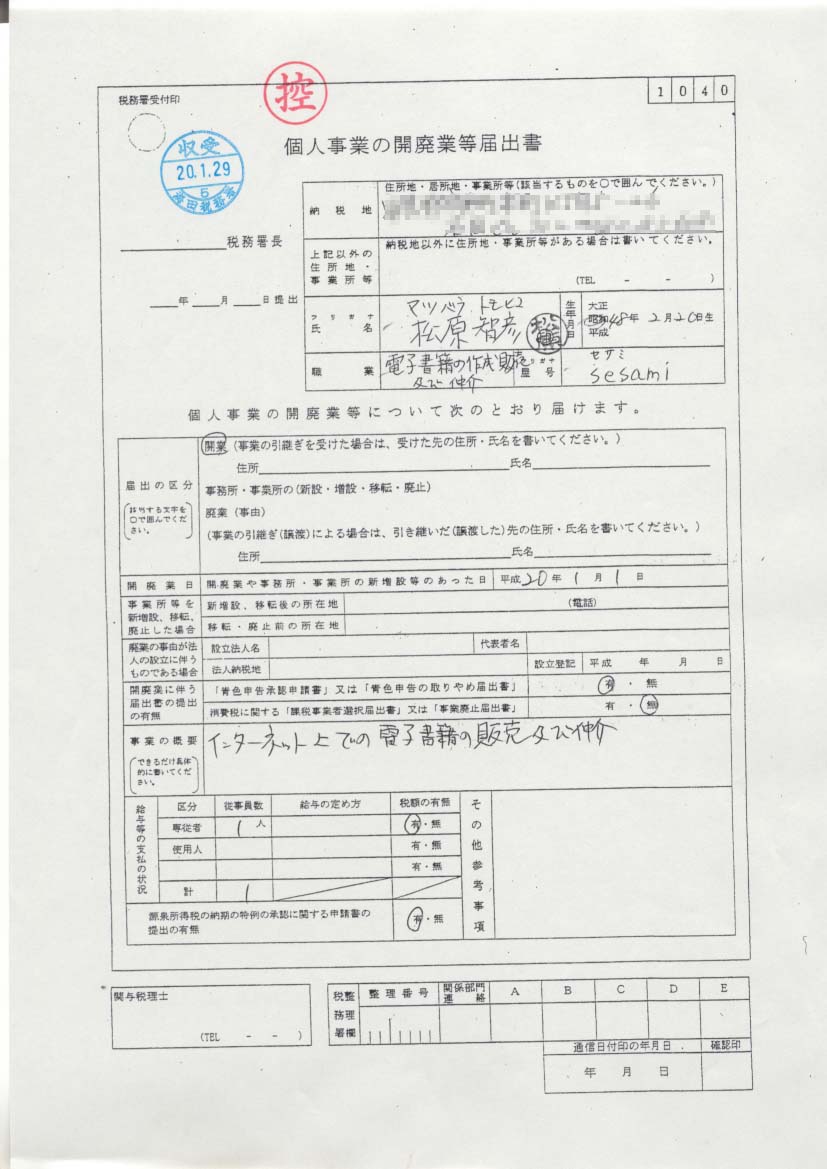 1040
税務署受付印
控
収受
20.1.29
5
個人事業の開廃業等届出書
納税地
住所地・居所地・事業所等(該当するものを○で囲んでください。)
税務署長
上記以外の住所地・事業所等
納税地以外に住所地・事業所等がある場合は書いてください。
(TEL - - )
年 月 日提出
フリガナ
マツバラ トモヒコ
氏名
松原智彦
生年月日
大正
昭和 48年 2月20日生
平成
職業
電子書籍の作成販売
及び仲介
フリガナ
セサミ
屋号
sesami
個人事業の開廃業等について次のとおり届けます。
届出の区分
該当する文字を○で囲んでください。
開業(事業の引継ぎを受けた場合は、受けた先の住所・氏名を書いてください。)
住所 氏名
事務所・事業所の(新設・増設・移転・廃止)
廃業(事由)
(事業の引継ぎ(譲渡)による場合は、引き継いだ(譲渡した)先の住所・氏名を書いてください。)
住所 氏名
開廃業日
開廃業や事務所・事業所の新増設等のあった日
平成20年 1月 1日
事業所等を新増設、移転、廃止した場合
新増設、移転後の所在地
(電話)
移転・廃止前の所在地
廃業の事由が法人の設立に伴うものである場合
設立法人名
代表者名
法人納税地
設立登記
平成 年 月 日
開廃業に伴う届出書の提出の有無
「青色申告承認申請書」又は「青色申告の取りやめ届出書」
有・無
消費税に関する「課税事業者選択届出書」又は「事業廃止届出書」
有・無
事業の概要
できるだけ具体的に書いてください。
インターネット上での電子書籍の販売及び仲介
給与等の支払の状況
区分
従事員数
給与の定め方
税額の有無
専従者
1人
有・無
使用人
有・無
有・無
計
1
その他参考事項
源泉所得税の納期の特例の承認に関する申請書の提出の有無
有・無
関与税理士
(TEL - - )
税務署整理欄
整理番号
関係部門連絡
A
B
C
D
E
通信日付印の年月日
確認印
年 月 日